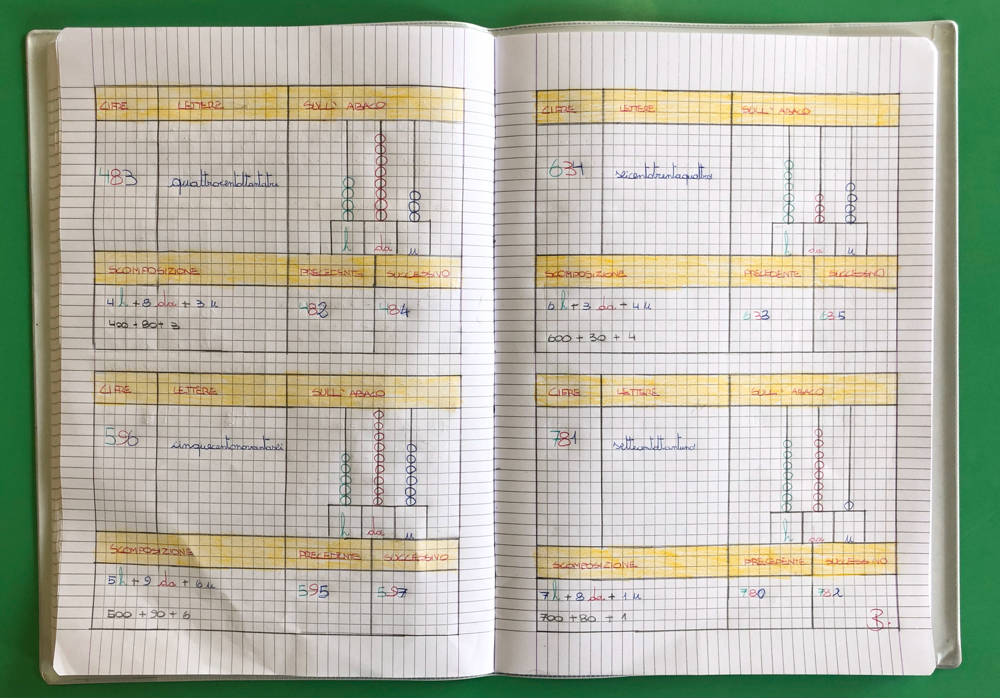 CIFRE LETTERE SULL' ABACO
483 quattrocentottantatre
h da u
SCOMPOSIZIONE PRECEDENTE SUCCESSIVO
4 h + 8 da + 3 u 482 484
400 + 80 + 3
CIFRE LETTERE SULL' ABACO
596 cinquecentonovantasei
h da u
SCOMPOSIZIONE PRECEDENTE SUCCESSIVO
5 h + 9 da + 6 u 595 597
500 + 90 + 6
CIFRE LETTERE SULL' ABACO
634 seicentotrentaquattro
h da u
SCOMPOSIZIONE PRECEDENTE SUCCESSIVO
6 h + 3 da + 4 u 633 635
600 + 30 + 4
CIFRE LETTERE SULL' ABACO
781 settecentottantuno
h da u
SCOMPOSIZIONE PRECEDENTE SUCCESSIVO
7 h + 8 da + 1 u 780 782
700 + 80 + 1
B.